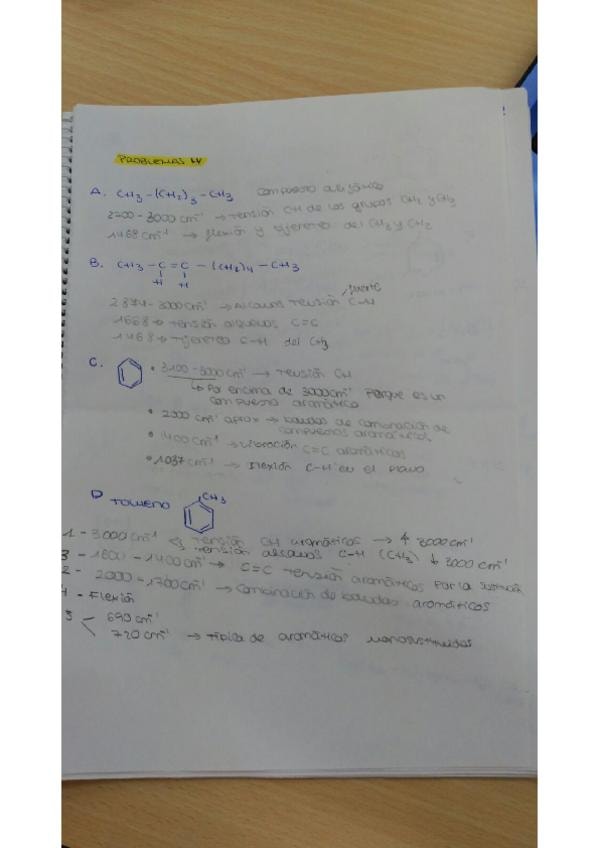 PROBLEMAS
A. CH3-(CH2)3-CH3 compuesto
2700-3000 cm-1 → tensión CH de los grupos CH2 y CH3
1468 cm-1 → flexión y tijereteo del CH3 y CH2
B. CH3-C=C-(CH2)4-CH3
H H
fuerte
2874-3000 cm-1 → Alcanos tensión C-H
1668 → tensión alquenos C=C
1468 → tijereteo C-H del CH3
C. • 3100-3000 cm-1 → tensión CH
↳ Por encima de 3000 cm-1 porque es un
compuesto aromático
• 2000 cm-1 aprox → bandas de combinación de
compuestos aromáticos
• 1400 cm-1 → vibración C=C aromáticos
• 1037 cm-1 → flexión C-H en el plano
D Tolueno
CH3
1-3000 cm-1 tensión CH aromáticos → ↑ 3000 cm-1
tensión alcanos C-H (CH3) ↓ 3000 cm-1
3-1600-1400 cm-1 → C=C tensión aromáticos por la
2-2000-1700 cm-1 → combinación de bandas aromáticos
4-Flexión
5 < 690 cm-1
720 cm-1 → típica de aromáticos monosustituidos